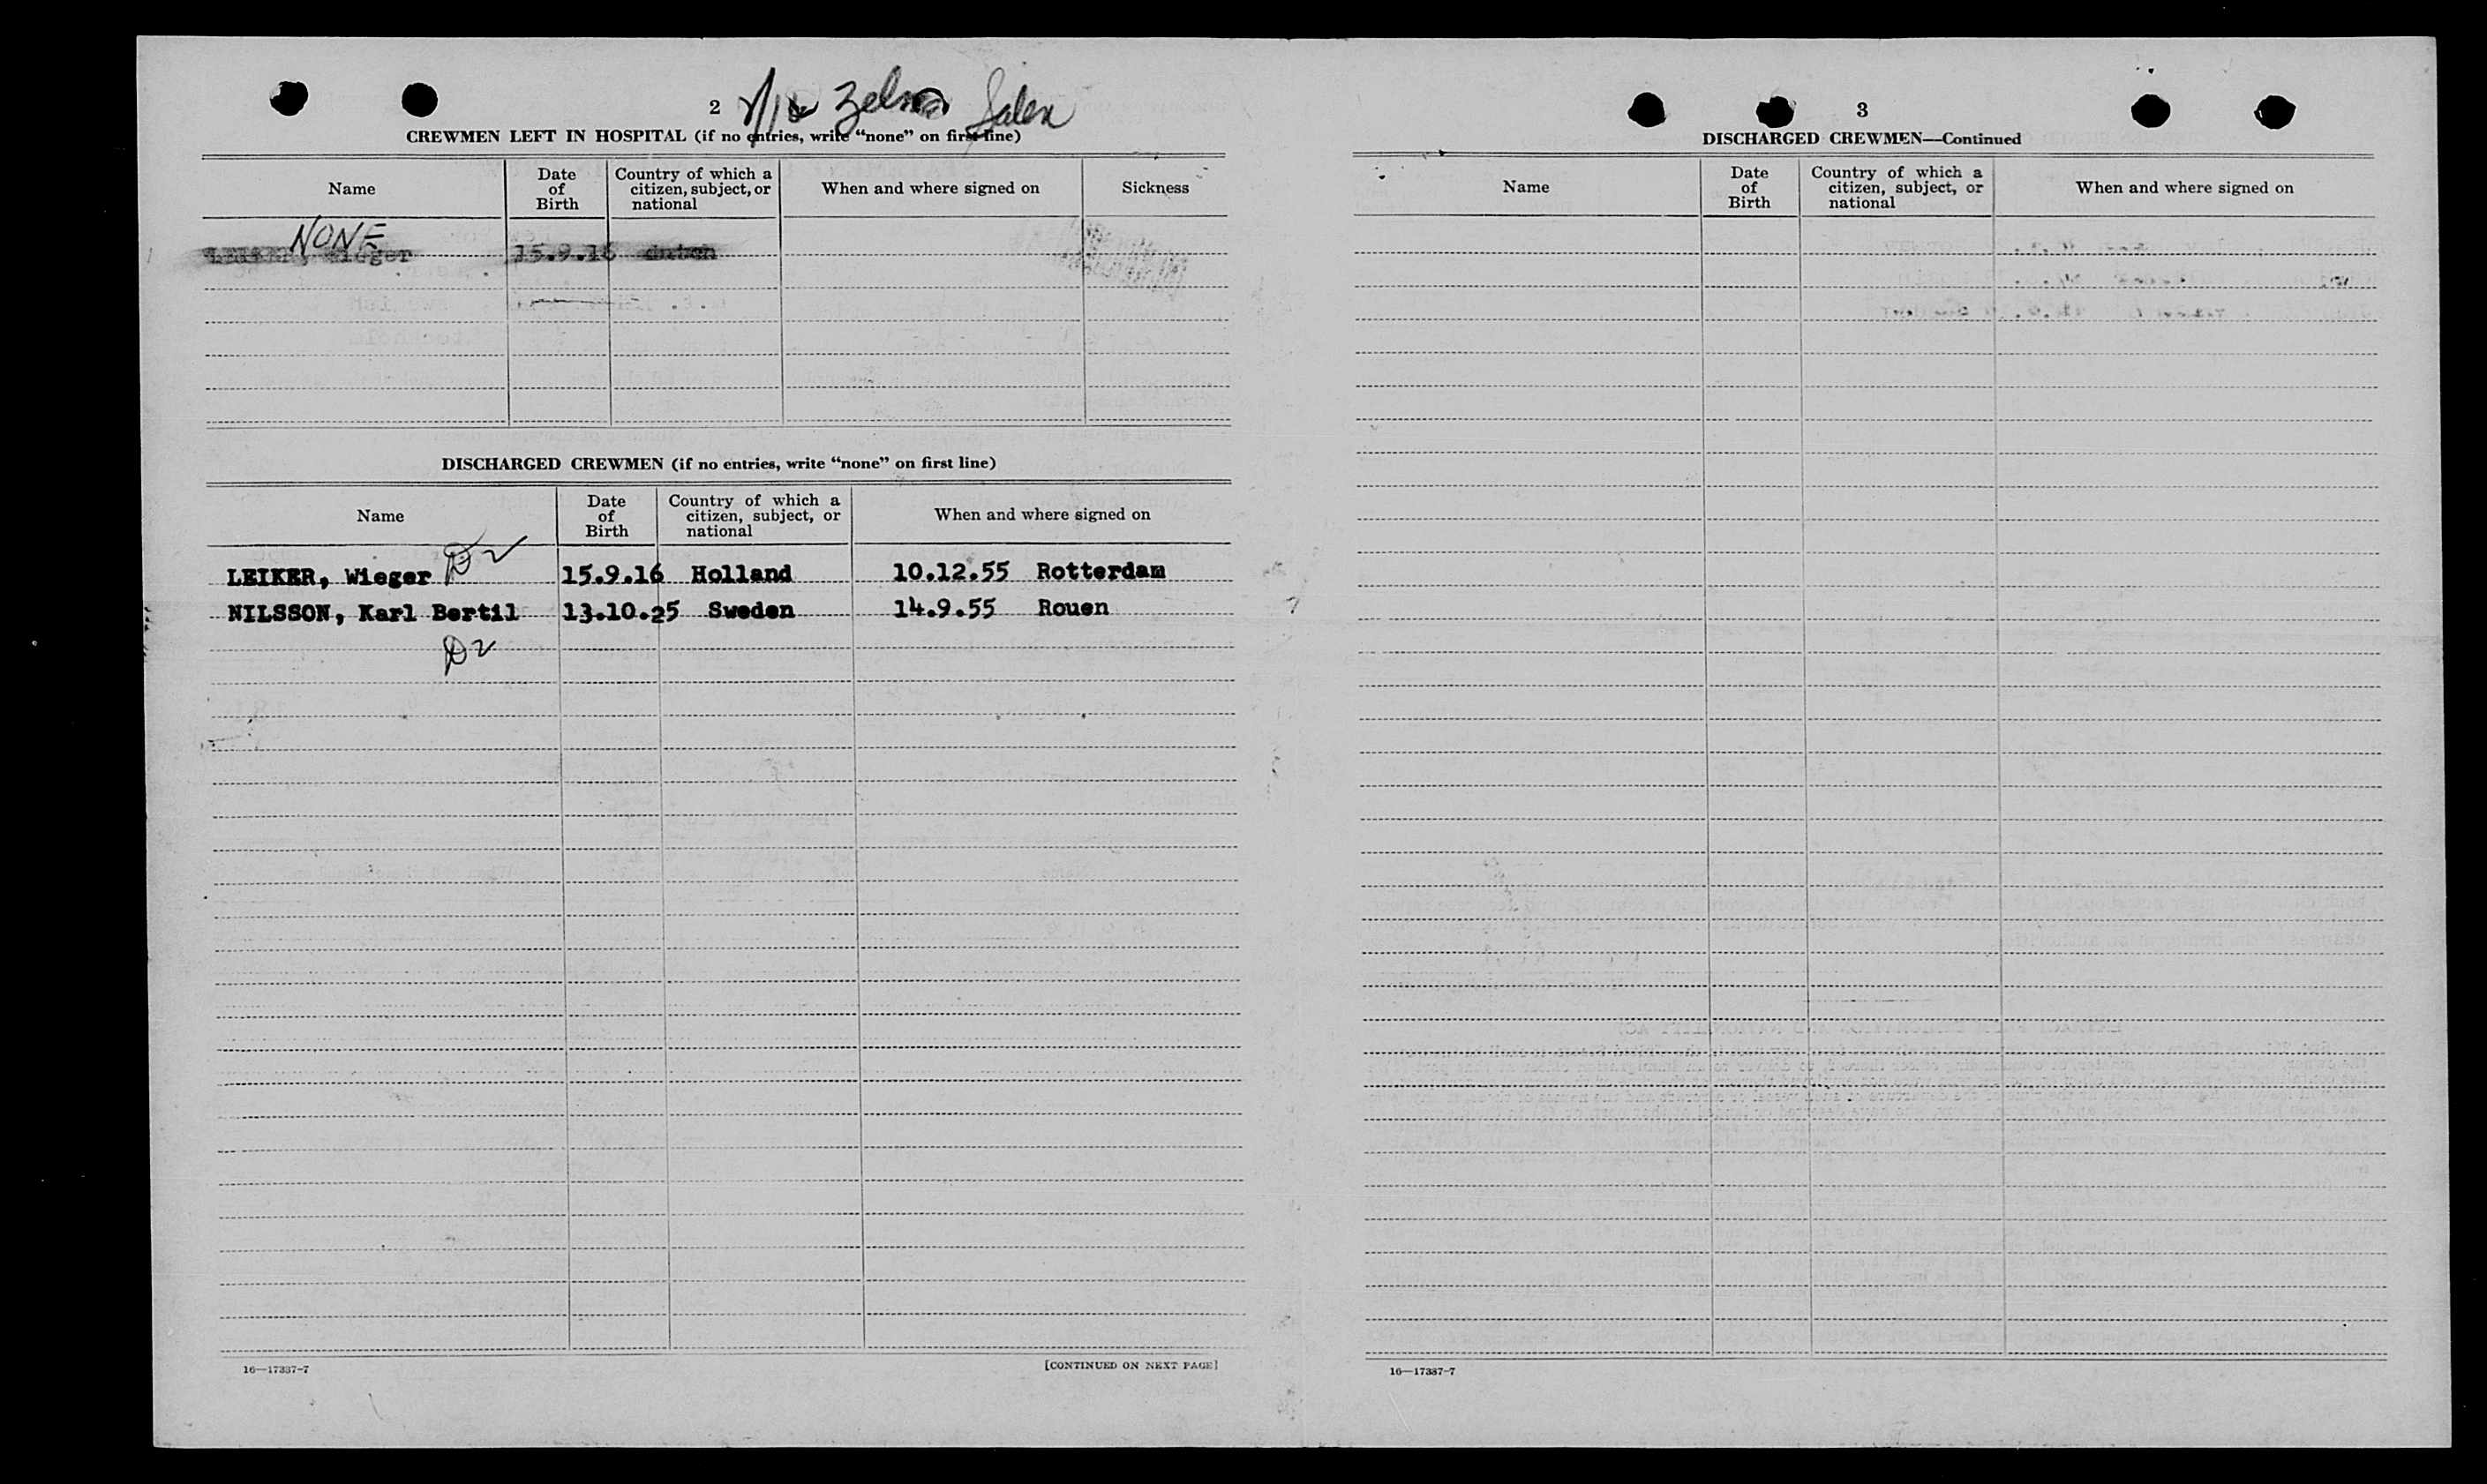 2 Zelma Salen
CREWMEN LEFT IN HOSPITAL (if no entries, write “none” on first line)
Name
Date of Birth
Country of which a citizen, subject, or national
When and where signed on
Sickness
NONE
LEIKER, Wieger 15.9.16 dutch
DISCHARGED CREWMEN (if no entries, write “none” on first line)
Name
Date of Birth
Country of which a citizen, subject, or national
When and where signed on
LEIKER, Wieger D2 15.9.16 Holland 10.12.55 Rotterdam
NILSSON, Karl Bertil 13.10.25 Sweden 14.9.55 Rouen
D2
16—17387-7
[CONTINUED ON NEXT PAGE]
3
DISCHARGED CREWMEN—Continued
Name
Date of Birth
Country of which a citizen, subject, or national
When and where signed on
16—17387-7